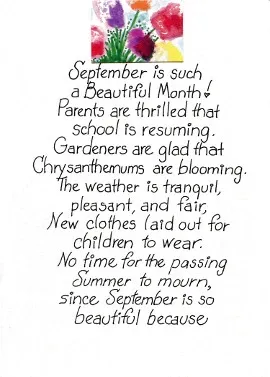 September is such
a Beautiful Month!
Parents are thrilled that
school is resuming.
Gardeners are glad that
Chrysanthemums are blooming.
The weather is tranquil,
pleasant, and fair,
New clothes laid out for
children to wear.
No time for the passing
Summer to mourn,
since September is so
beautiful because